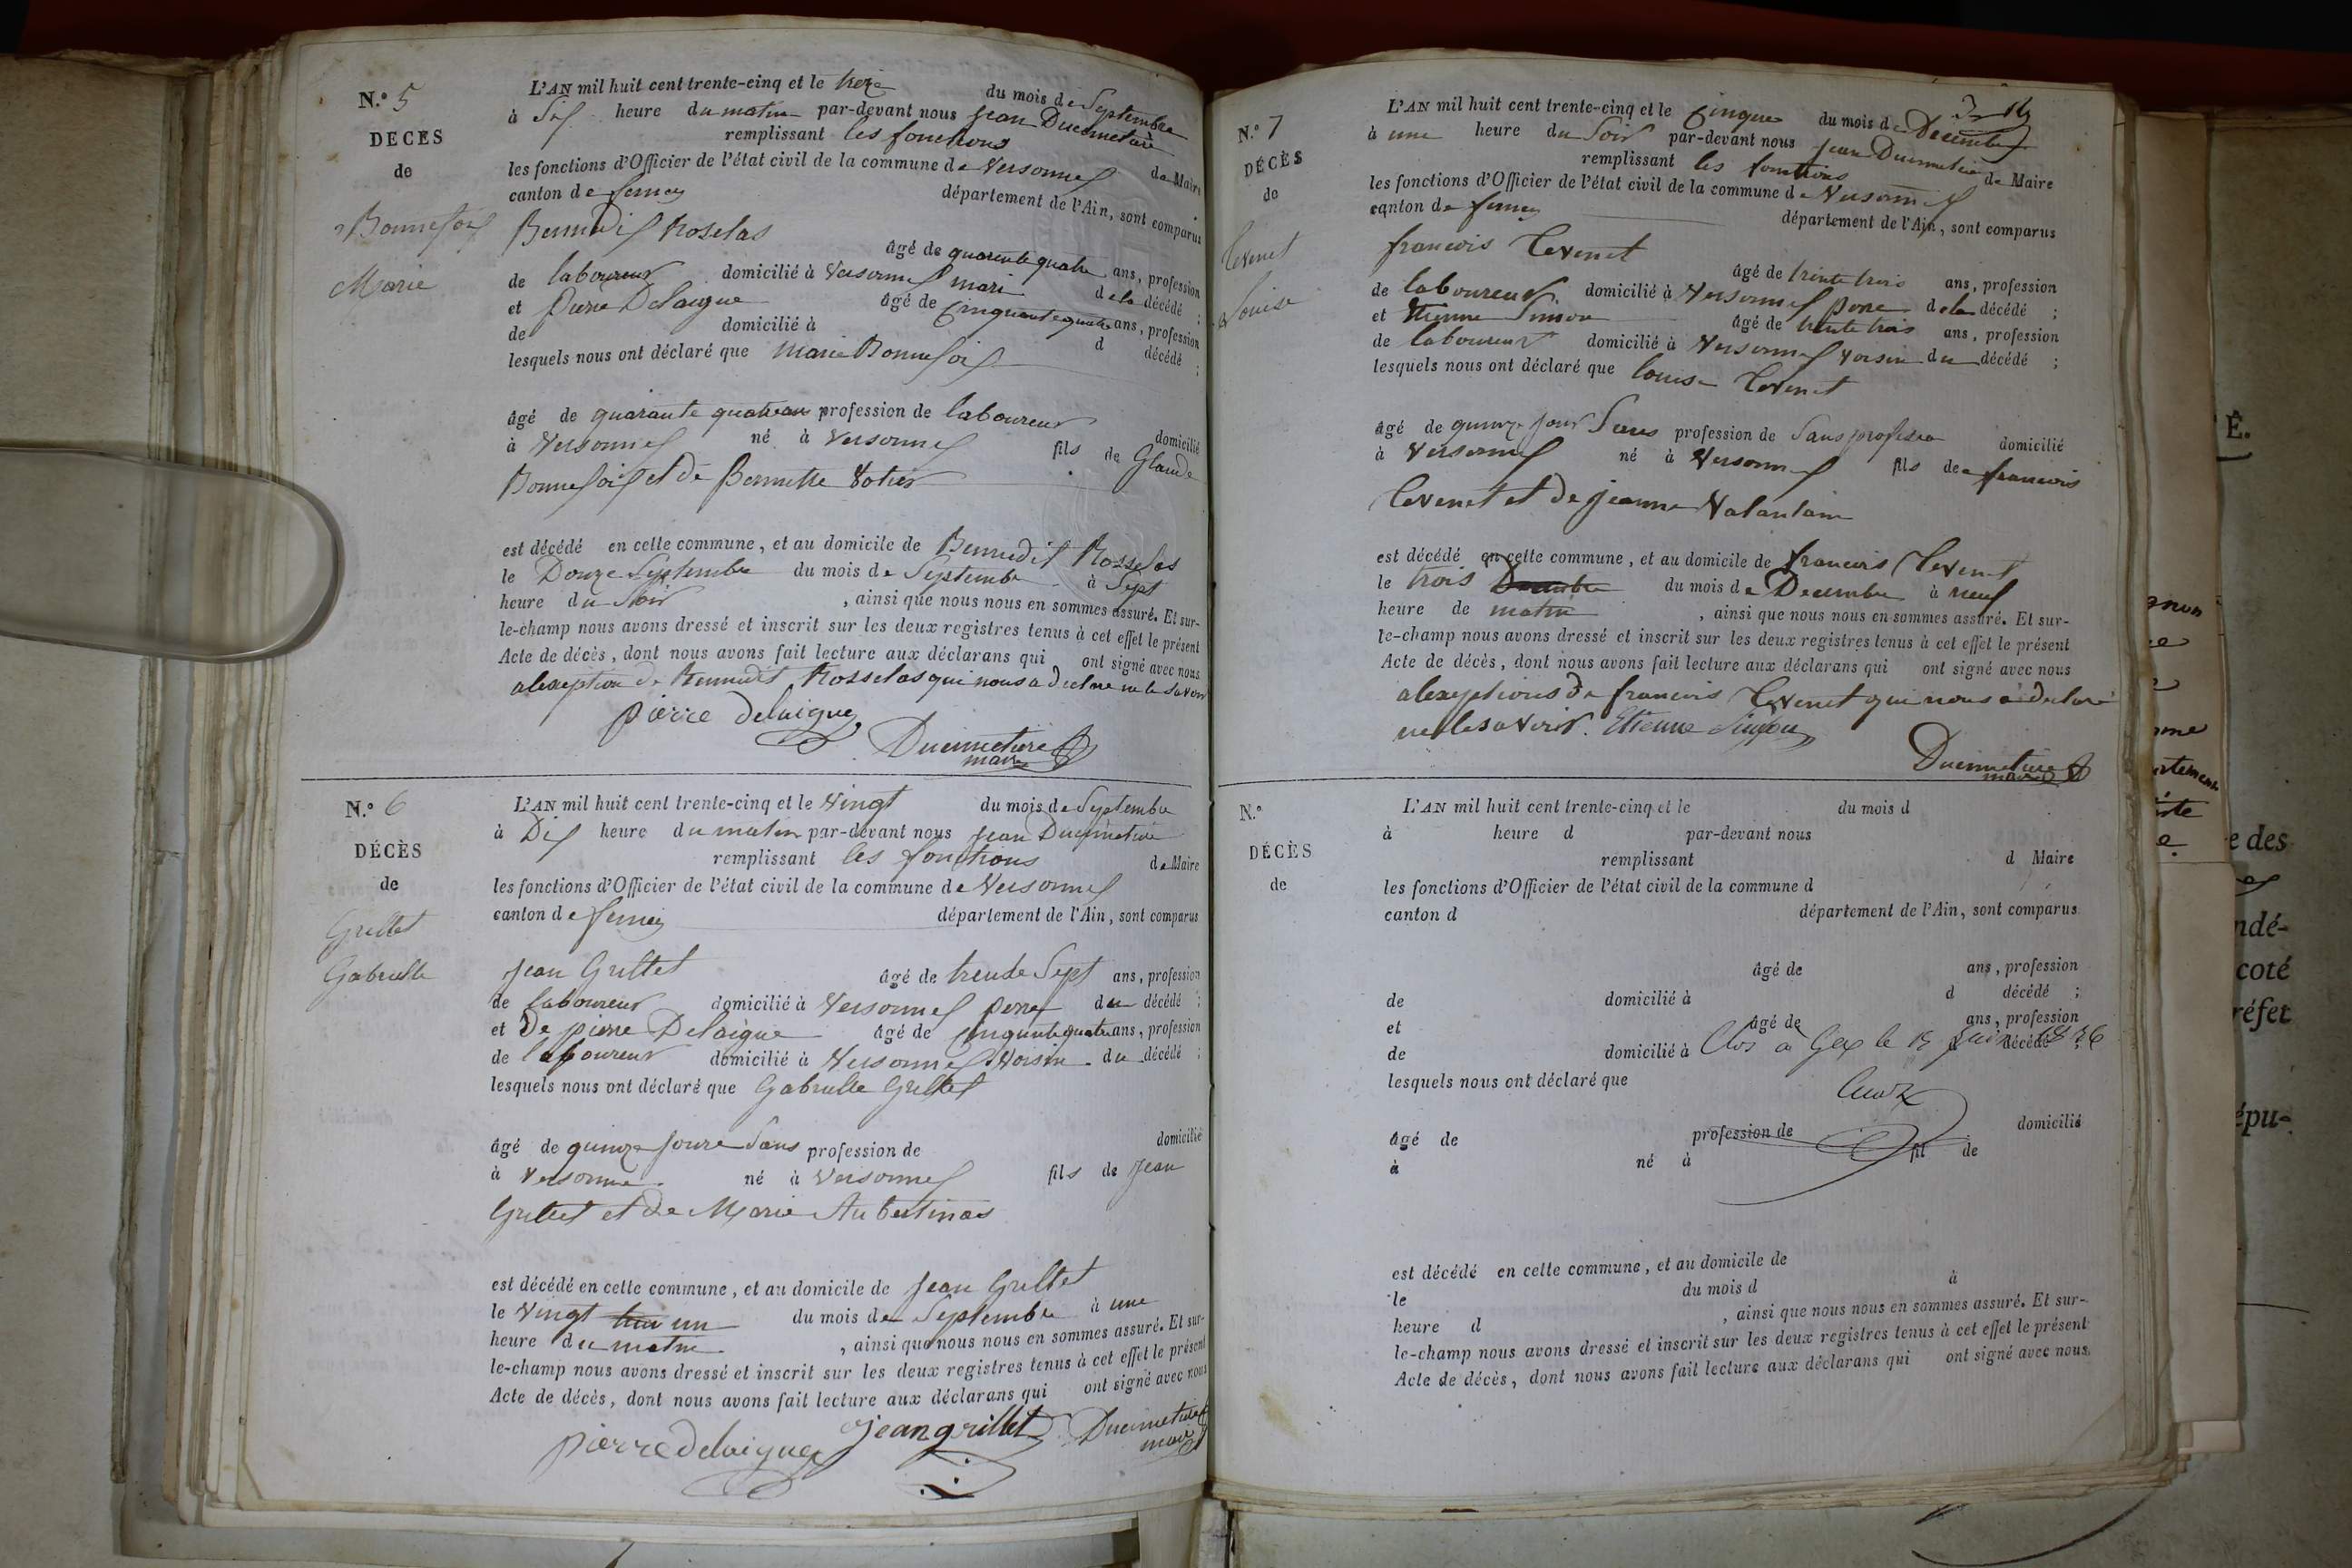 N.° 5
DÉCÈS
de
Bonnefois
Marie
L'AN mil huit cent trente-cinq et le treize du mois de Septembre
à Six heure du matin par-devant nous Jean Ducimetière
remplissant les fonctions de Maire
les fonctions d'Officier de l'état civil de la commune de Versonnex
canton de ferney département de l'Ain, sont comparus
Rosselas
âgé de quarente quatre ans, profession
de laboureur domicilié à Versonnex mari de la décédé ;
et Pierre Delaigue âgé de cinquante quatre ans, profession
de domicilié à d décédé ;
lesquels nous ont déclaré que Marie Bonnefoix
âgé de quarante quatre ans profession de laboureur domicilié
à Versonnex né à Versonnex fils de Glaude
Bonnefoix et de Pernette
est décédé en cette commune, et au domicile de Rosselas
le Douze Septembre du mois de Septembre à Sept
heure du Soir , ainsi que nous nous en sommes assuré. Et sur-
le-champ nous avons dressé et inscrit sur les deux registres tenus à cet effet le présent
Acte de décès, dont nous avons fait lecture aux déclarans qui ont signé avec nous
alexeption de Rosselas qui nous a declare ne le savoir
pierre delaigue
Ducimetière
maire
N.° 6
DÉCÈS
de
Grillet
Gabrielle
L'AN mil huit cent trente-cinq et le vingt du mois de Septembre
à Dix heure du matin par-devant nous Jean Ducimetière
remplissant les fonctions de Maire
les fonctions d'Officier de l'état civil de la commune de Versonnex
canton de ferney département de l'Ain, sont comparus
Jean Grillet âgé de trente Sept ans, profession
de laboureur domicilié à Versonnex pere du décédé ;
et de pierre Delaigue âgé de cinquante quatre ans, profession
de laboureur domicilié à Versonnex Voisin du décédé ;
lesquels nous ont déclaré que Gabrielle Grillet
âgé de quinze Jours Sans profession de domicilié
à Versonne né à Versonnex fils de Jean
Grillet et de Marie Aubertinas
est décédé en cette commune, et au domicile de Jean Grillet
le vingt un du mois de Septembre à une
heure du matin , ainsi que nous nous en sommes assuré. Et sur-
le-champ nous avons dressé et inscrit sur les deux registres tenus à cet effet le présent
Acte de décès, dont nous avons fait lecture aux déclarans qui ont signé avec nous
pierre delaigue jean grillet Ducimetière
maire
N.° 7
DÉCÈS
de
Tevenet
Louise
L'AN mil huit cent trente-cinq et le Cinque du mois de Decembre
à une heure du Soir par-devant nous Jean Ducimetière
remplissant les fonctions de Maire
les fonctions d'Officier de l'état civil de la commune de Versonnex
canton de ferney département de l'Ain, sont comparus
francois Tevenet
âgé de trente trois ans, profession
de laboureur domicilié à Versonnex pere de la décédé ;
et Etienne Simon âgé de trente trois ans, profession
de laboureur domicilié à Versonnex voisin du décédé ;
lesquels nous ont déclaré que louise Tevenet
âgé de quinze jour Sans profession de Sans profesion domicilié
à Versonnex né à Versonnex fils de francois
Tevenet et de jeanne Valantain
est décédé en cette commune, et au domicile de francois Tevenet
le trois Decembre du mois de Decembre à neuf
heure de matin , ainsi que nous nous en sommes assuré. Et sur-
le-champ nous avons dressé et inscrit sur les deux registres tenus à cet effet le présent
Acte de décès, dont nous avons fait lecture aux déclarans qui ont signé avec nous
alexeptions de francois Tevenet qui nous a declaré
ne le savoir. Etienne Simon
Ducimetière
maire
N.°
DÉCÈS
de
L'AN mil huit cent trente-cinq et le du mois d
à heure d par-devant nous
remplissant d Maire
les fonctions d'Officier de l'état civil de la commune d
canton d département de l'Ain, sont comparus
âgé de ans, profession
de domicilié à d décédé ;
et âgé de ans, profession
de domicilié à décédé ;
Clos à Gex le 15 Juin 1836
lesquels nous ont déclaré que
âgé de profession de domicilié
à né à fil de
est décédé en cette commune, et au domicile de
le du mois d à
heure d , ainsi que nous nous en sommes assuré. Et sur-
le-champ nous avons dressé et inscrit sur les deux registres tenus à cet effet le présent
Acte de décès, dont nous avons fait lecture aux déclarans qui ont signé avec nous